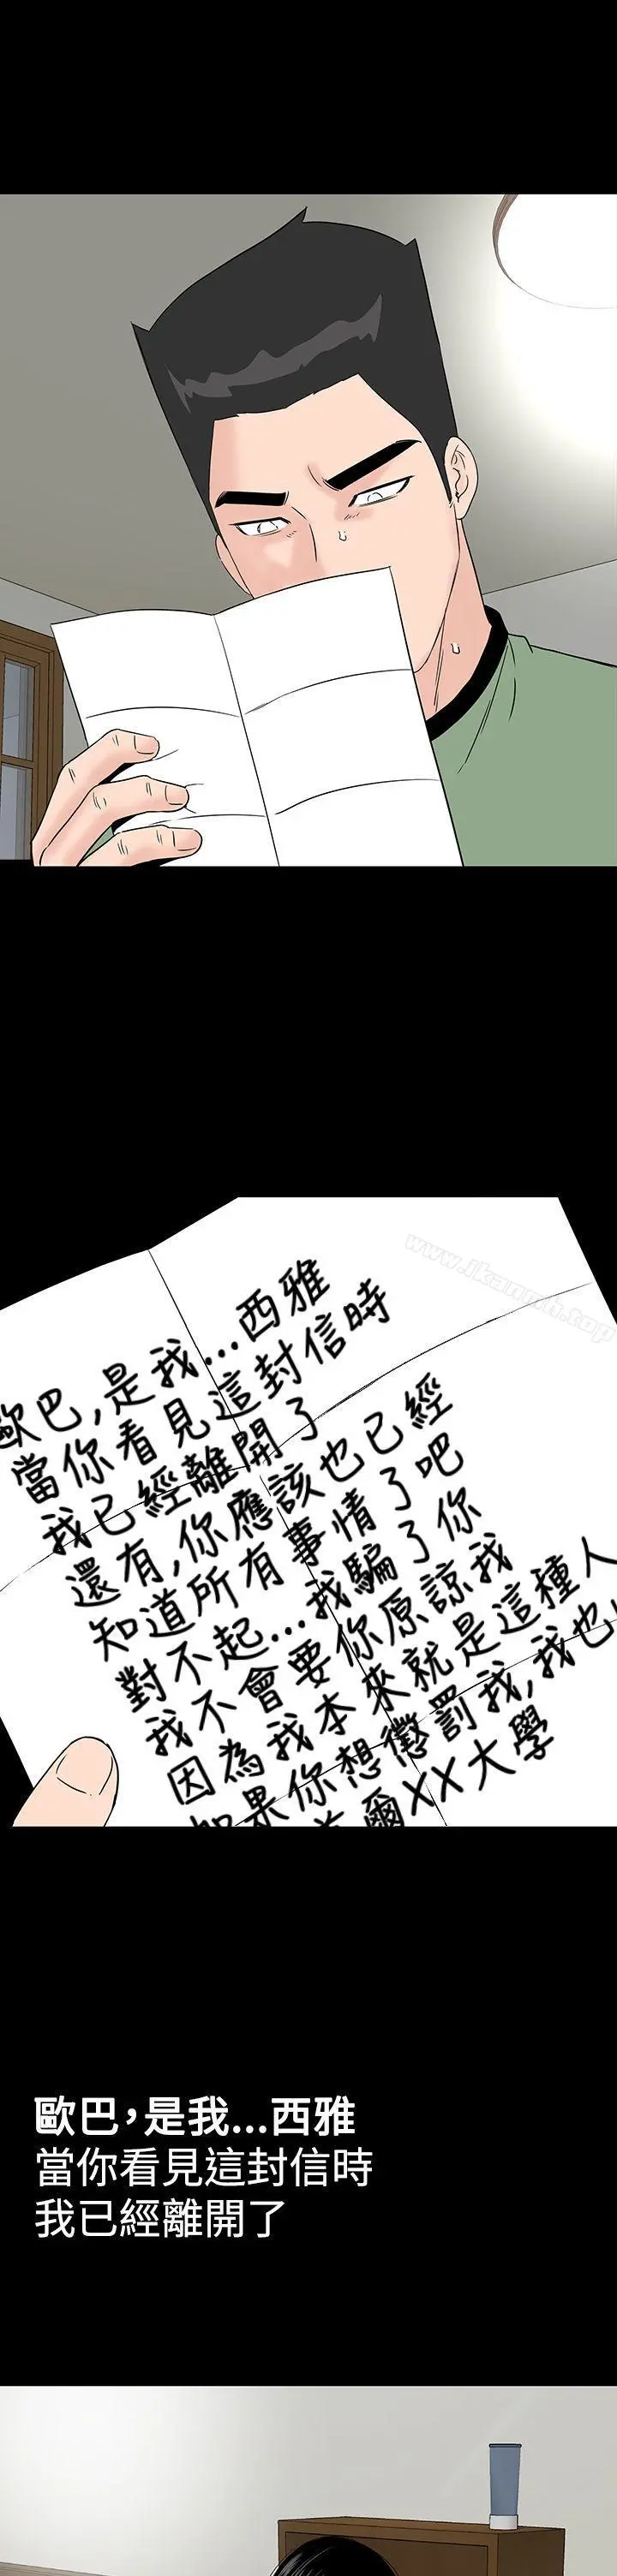 www.ikanmh.top
歐巴,是我...西雅
當你看見這封信時
我已經離開了
還有,你應該也已經
知道所有事情了吧
對不起...我騙了你
我不會要你原諒我
因為我本來就是這種人
如果你想懲罰我,我也
爾XX大學
歐巴,是我...西雅
當你看見這封信時
我已經離開了